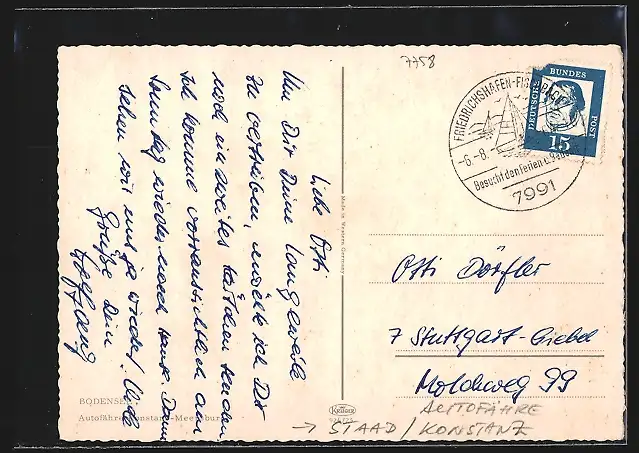 7758
Liebe Otti
Um Dir Deine Langeweile
zu vertreiben, möchte ich Dir
noch ein zweites Kärtchen senden.
Ich komme voraussichtlich am
Sonntag wieder nach Hause. Dann
sehen wir uns ja wieder! Viele
Grüße Dein
Wolfgang
BODENSEE
Autofähre Konstanz-Meersburg
Made in Western Germany
Krüger
FRIEDRICHSHAFEN-FISCHBACH
-6.-8.
Besucht den Ferien
7991
DEUTSCHE
BUNDES
POST
15
Otti Dörfler
7 Stuttgart-Giebel
Molchweg 99
AUTOFÄHRE
→ STAAD/KONSTANZ